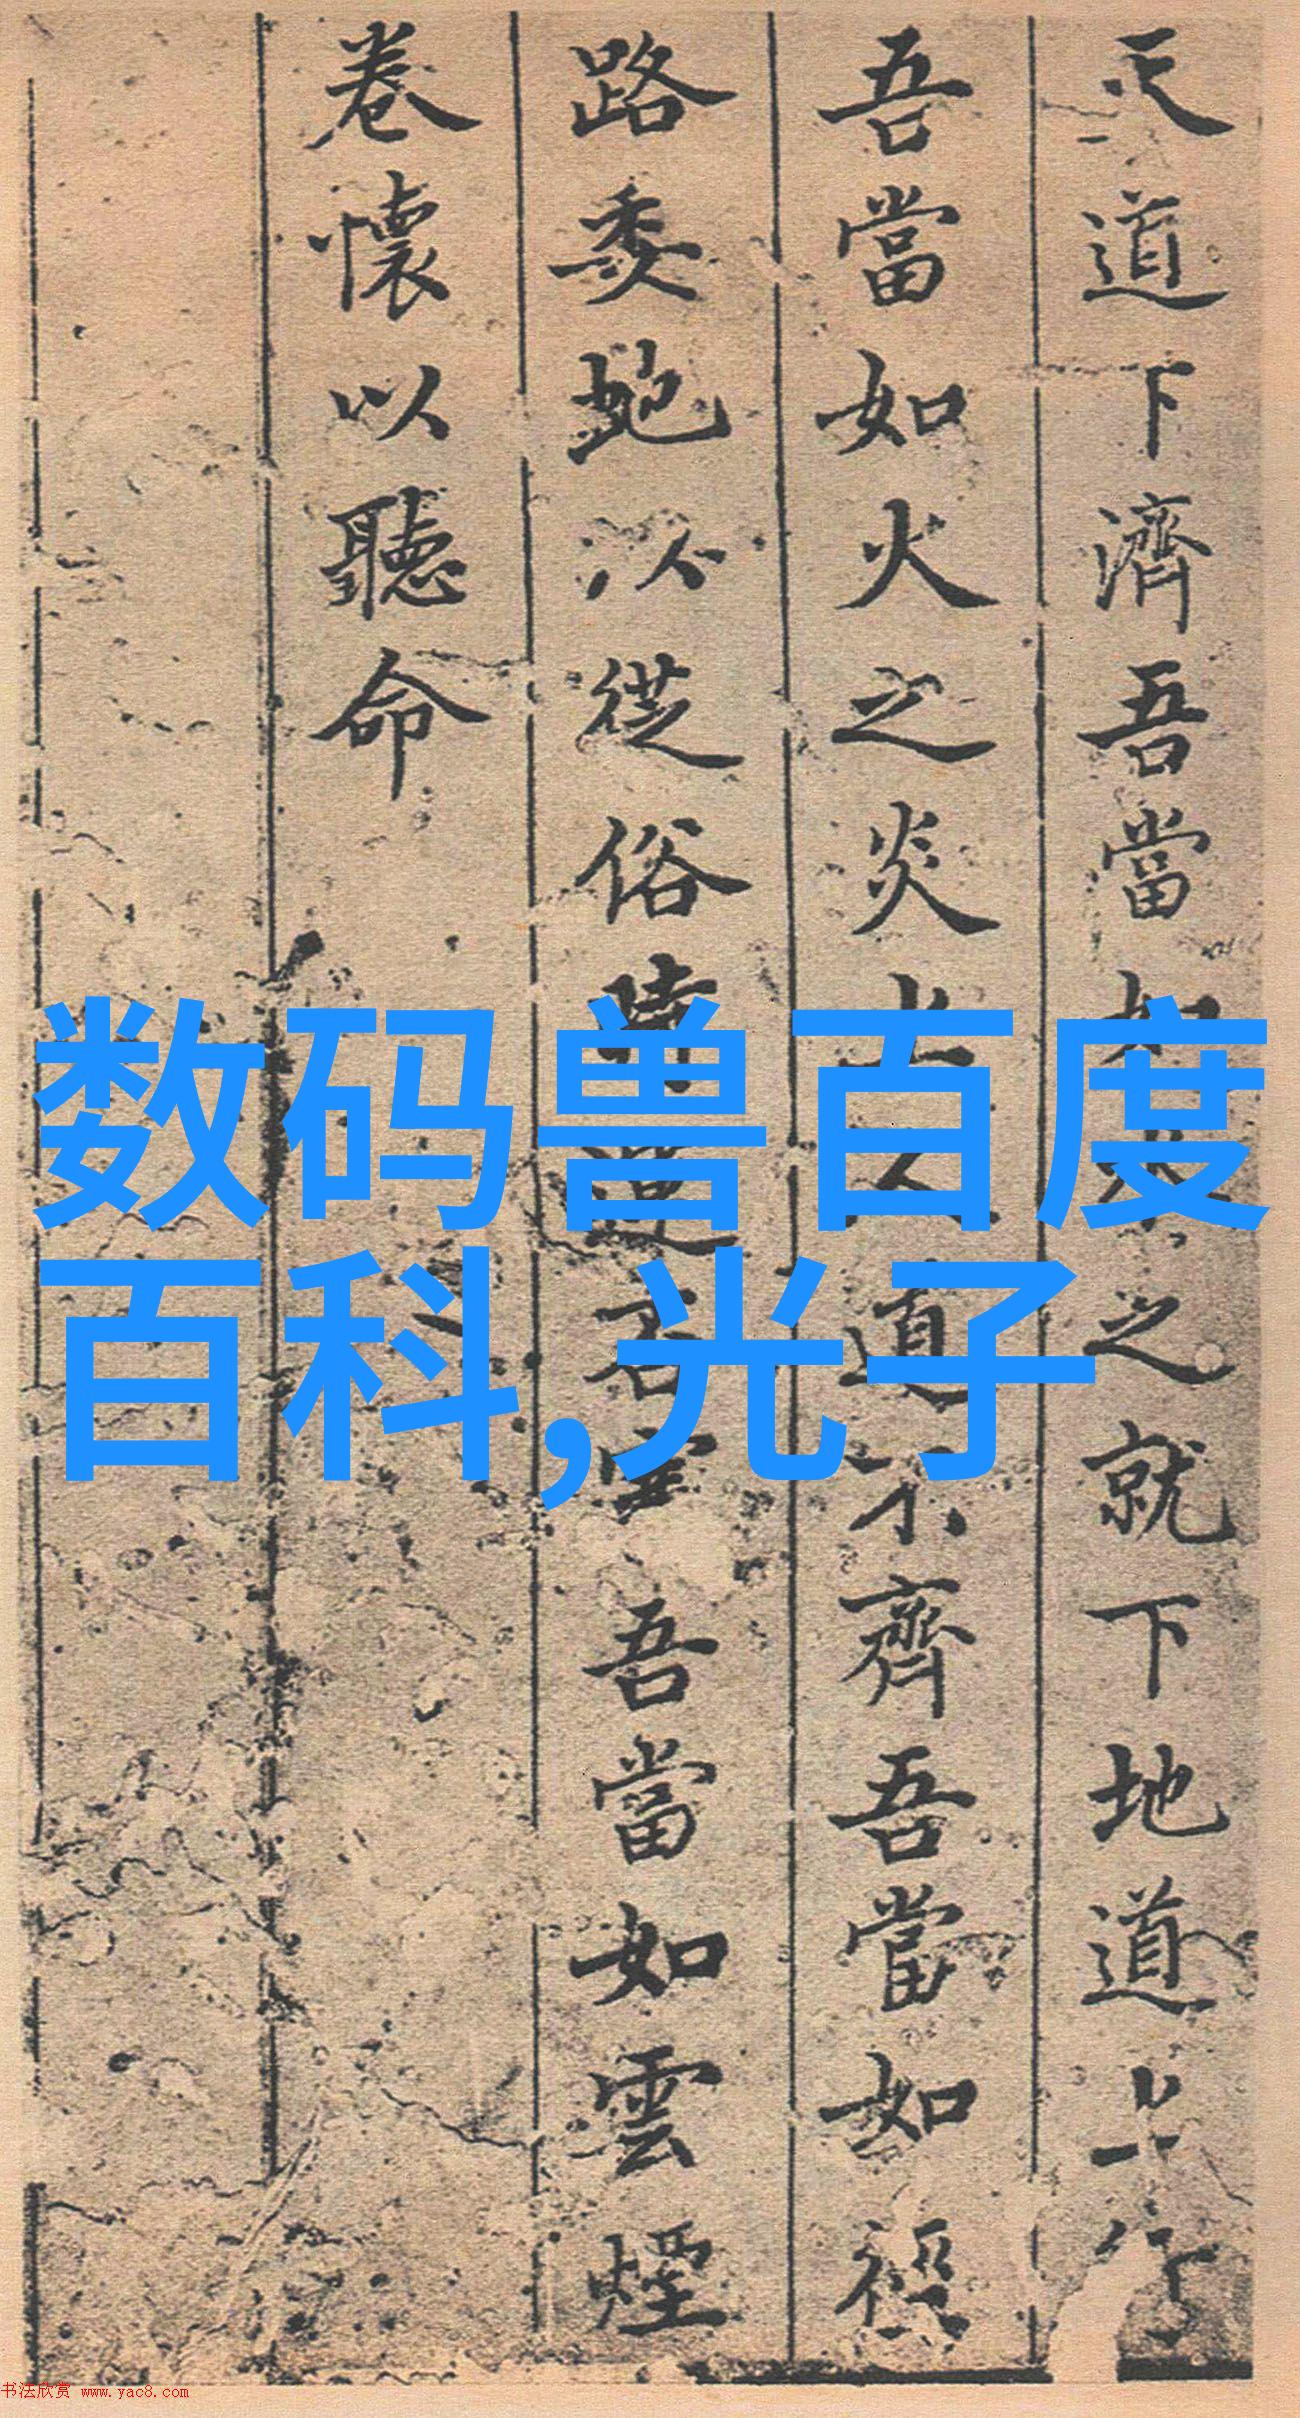 天道下濟吾當如之就下地道上行
吾當如火之炎上人道不齊吾當如徑
路委虵以從俗時否吾當如雲煙
卷懷以聽命
数码兽百度
百科,光子
书法欣赏 www.yac8.com